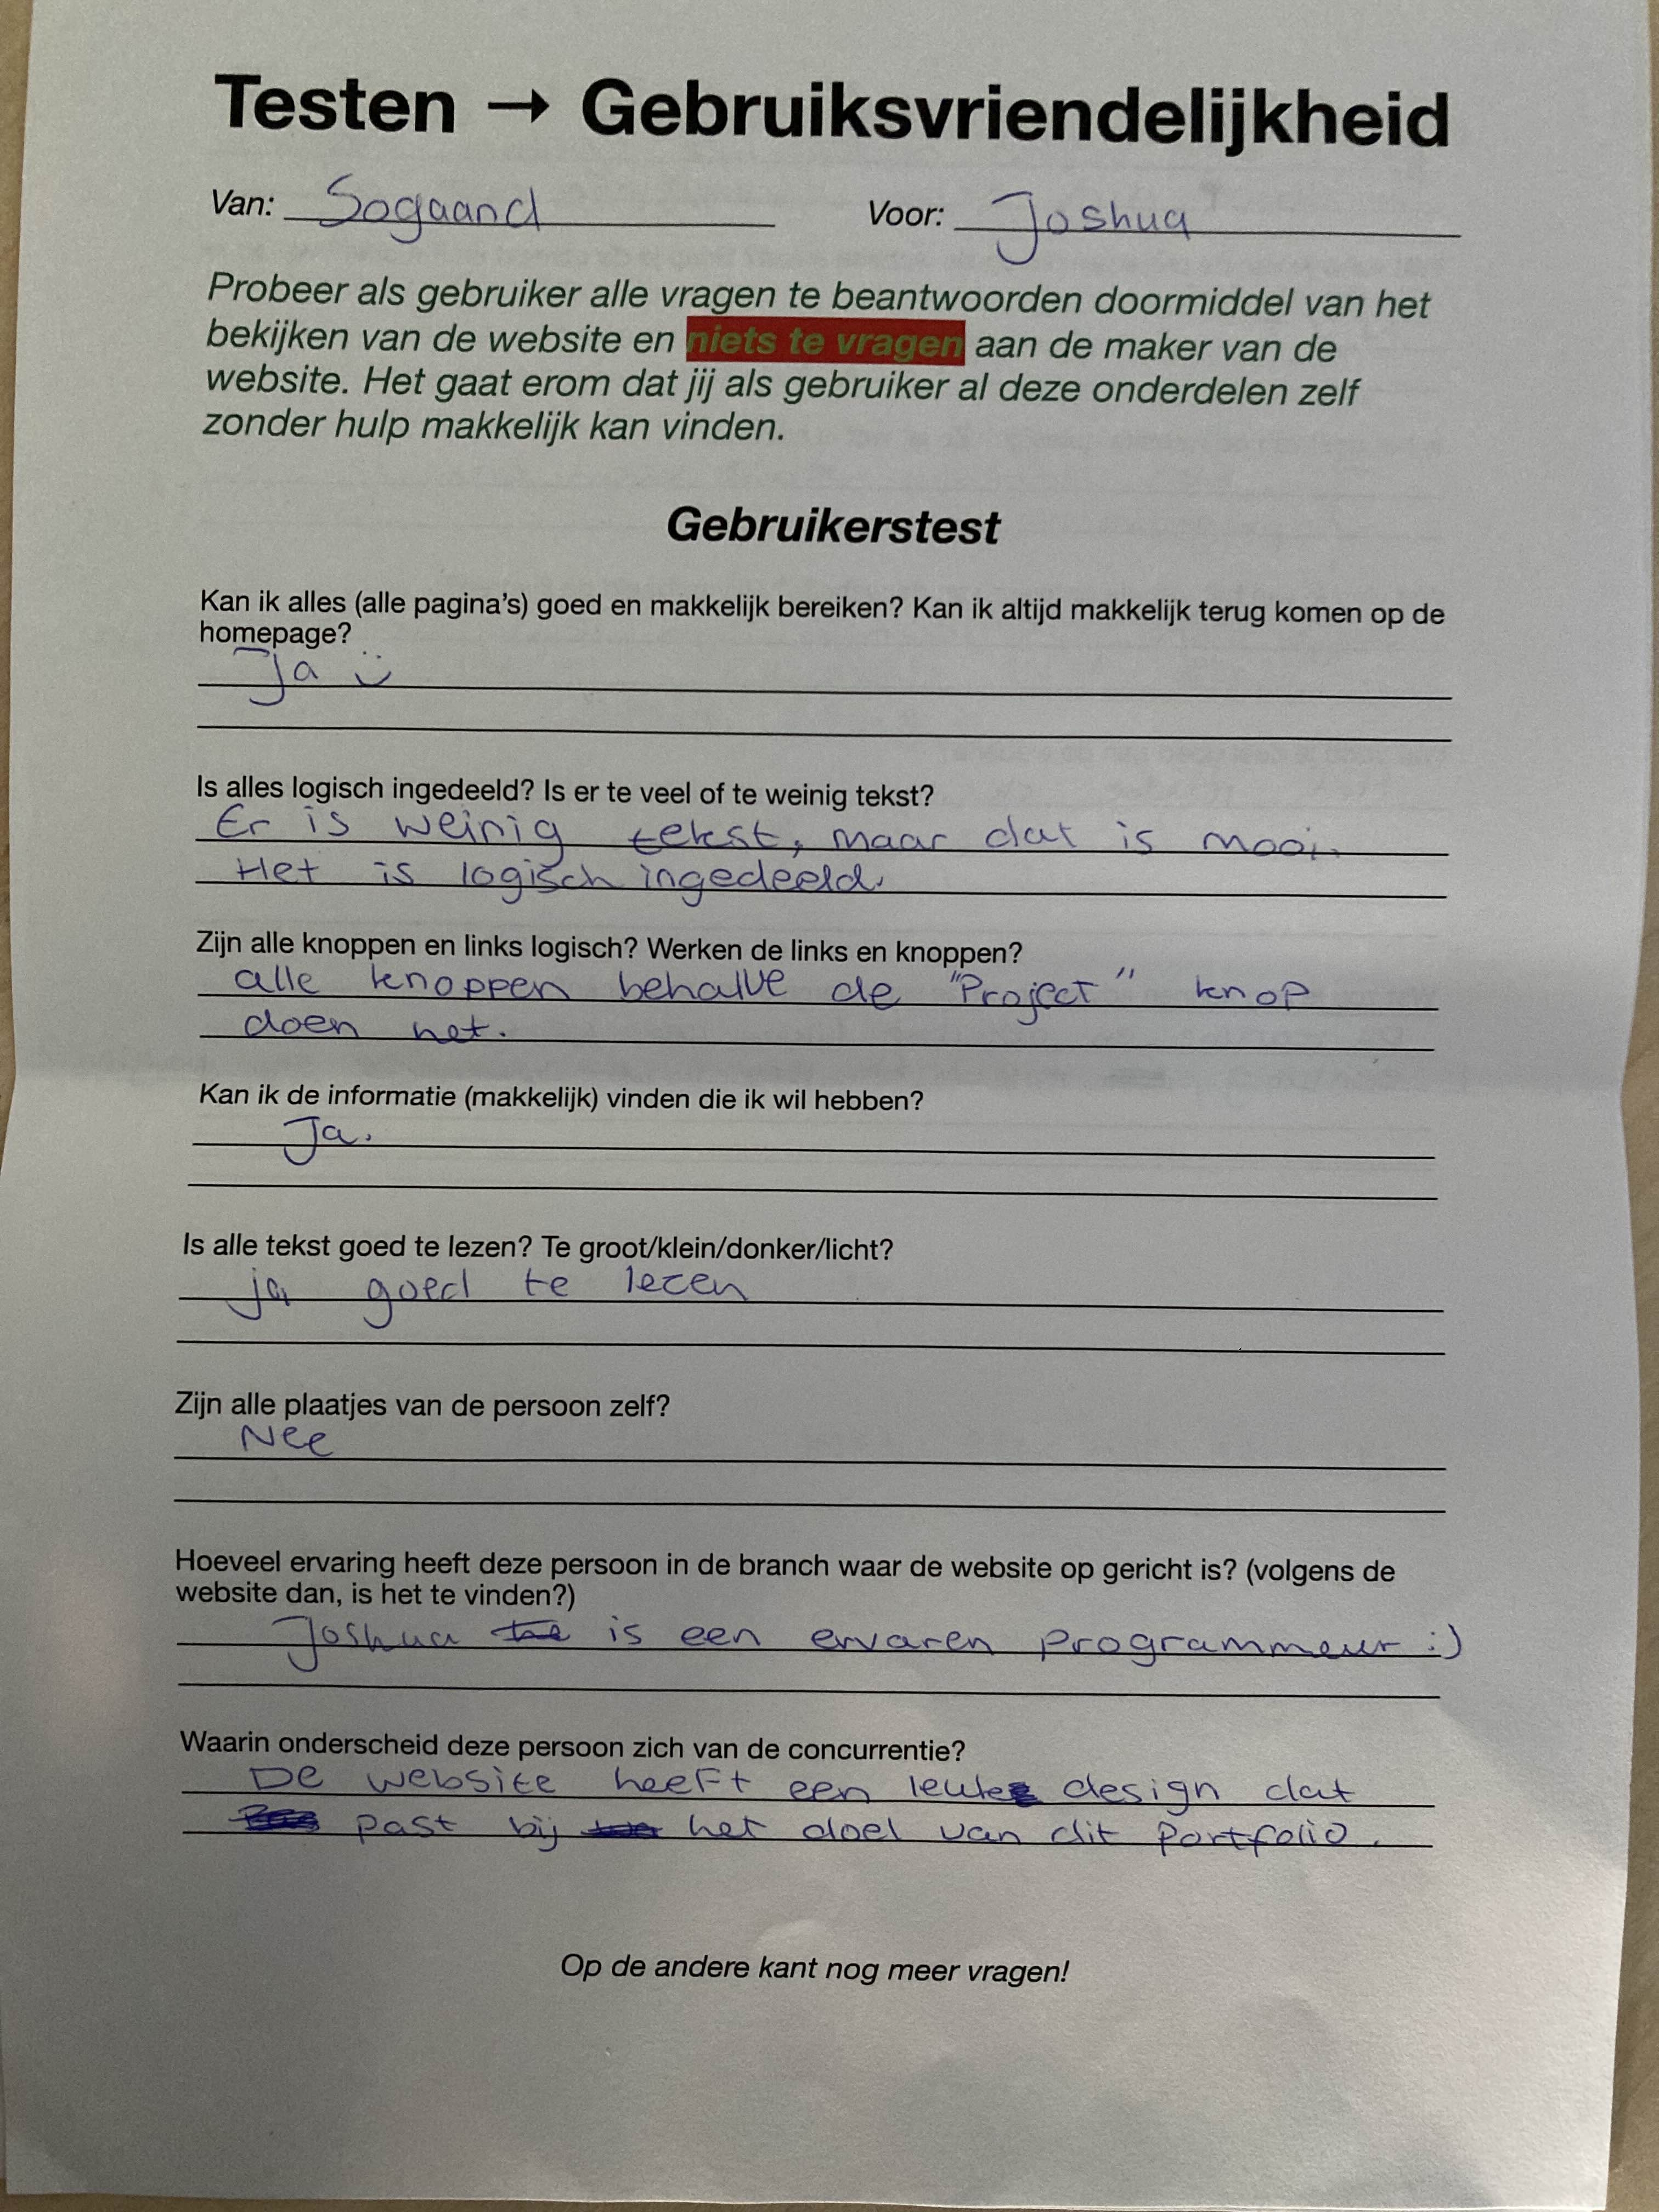 Testen → Gebruiksvriendelijkheid
Van: Sogaand Voor: Joshua
Probeer als gebruiker alle vragen te beantwoorden doormiddel van het
bekijken van de website en niets te vragen aan de maker van de
website. Het gaat erom dat jij als gebruiker al deze onderdelen zelf
zonder hulp makkelijk kan vinden.
Gebruikerstest
Kan ik alles (alle pagina's) goed en makkelijk bereiken? Kan ik altijd makkelijk terug komen op de
homepage?
Ja :)
Is alles logisch ingedeeld? Is er te veel of te weinig tekst?
Er is weinig tekst, maar dat is mooi.
Het is logisch ingedeeld.
Zijn alle knoppen en links logisch? Werken de links en knoppen?
alle knoppen behalve de "Project" knop
doen het.
Kan ik de informatie (makkelijk) vinden die ik wil hebben?
Ja.
Is alle tekst goed te lezen? Te groot/klein/donker/licht?
ja goed te lezen
Zijn alle plaatjes van de persoon zelf?
Nee
Hoeveel ervaring heeft deze persoon in de branch waar de website op gericht is? (volgens de
website dan, is het te vinden?)
Joshua is een ervaren programmeur :)
Waarin onderscheid deze persoon zich van de concurrentie?
De website heeft een leuke design dat
past bij het doel van dit portfolio.
Op de andere kant nog meer vragen!